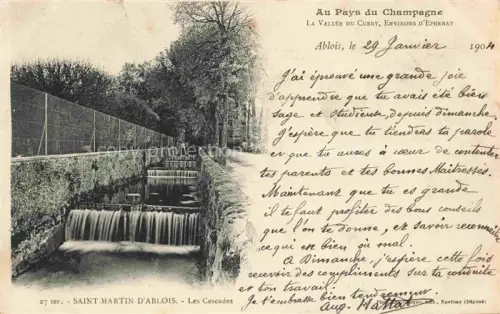 Au Pays du Champagne
LA VALLÉE DU CUBRY, ENVIRONS D'EPERNAY
Ablois, le 29 Janvier 1904
J'ai éprouvé une grande joie
d'apprendre que tu avais été bien
sage et studieuse, depuis dimanche.
J'espère que tu tiendras ta parole
et que tu auras à cœur de contenter
tes parents et tes bonnes Maîtresses.
Maintenant que tu es grande
il te faut profiter des bons conseils
que l'on te donne, et savoir reconnaître
ce qui est bien ou mal.
A Dimanche, j'espère cette fois
recevoir des compliments sur ta conduite
et ton travail.
Je t'embrasse bien tendrement
Aug. Hattat
27 ter. - SAINT-MARTIN D'ABLOIS. - Les Cascades
Epernay (Déposé)